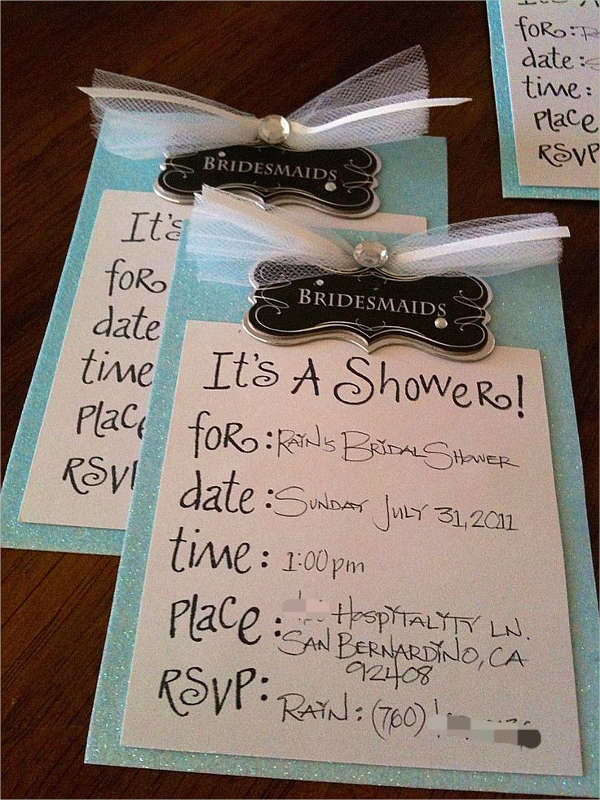 BRIDESMAIDS
It's
for
date
time
Place
RSVP
for:
date:
time:
Place
RSVP
BRIDESMAIDS
It's A Shower!
for: Rain's Bridal Shower
date: Sunday July 31, 2011
time: 1:00pm
Place: Hospitality Ln.
San Bernardino, CA
92408
RSVP: Rain: (760)